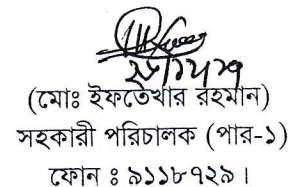 (মোঃ ইফতেখার রহমান)
সহকারী পরিচালক (পার-১)
ফোন ঃ ৯১১৮৭২৯।